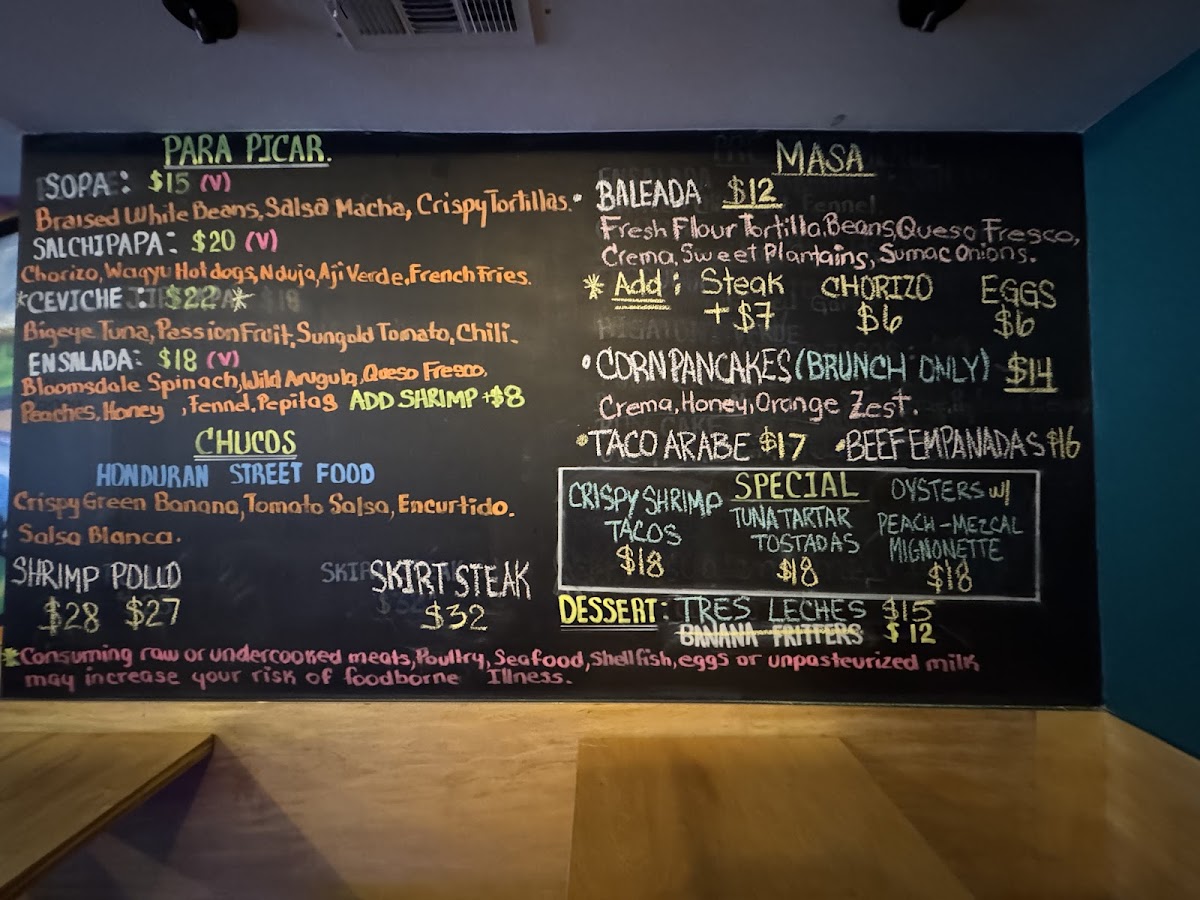 PARA PICAR.
SOPA: $15 (V)
Braised White Beans, Salsa Macha, Crispy Tortillas.
SALCHIPAPA: $20 (V)
Chorizo, Wagyu Hotdogs, Nduja, Aji Verde, French Fries.
*CEVICHE: $22 *
Bigeye Tuna, Passion Fruit, Sungold Tomato, Chili.
ENSALADA: $18 (V)
Bloomsdale Spinach, Wild Arugula, Queso Fresco,
Peaches, Honey , Fennel, Pepitas ADD SHRIMP +$8
CHUCOS
HONDURAN STREET FOOD
Crispy Green Banana, Tomato Salsa, Encurtido.
Salsa Blanca.
SHRIMP POLLO SKIRT STEAK
$28 $27 $32
MASA
• BALEADA $12
Fresh Flour Tortilla, Beans, Queso Fresco,
Crema, Sweet Plantains, Sumac Onions.
* Add: Steak CHORIZO EGGS
+$7 $6 $6
• CORN PANCAKES (BRUNCH ONLY) $14
Crema, Honey, Orange Zest.
• TACO ARABE $17 • BEEF EMPANADAS $16
SPECIAL
CRISPY SHRIMP
TACOS
$18
TUNA TARTAR
TOSTADAS
$18
OYSTERS w/
PEACH-MEZCAL
MIGNONETTE
$18
DESSERT: TRES LECHES $15
BANANA FRITTERS $12
*Consuming raw or undercooked meats, Poultry, Seafood, Shellfish, eggs or unpasteurized milk
may increase your risk of foodborne Illness.